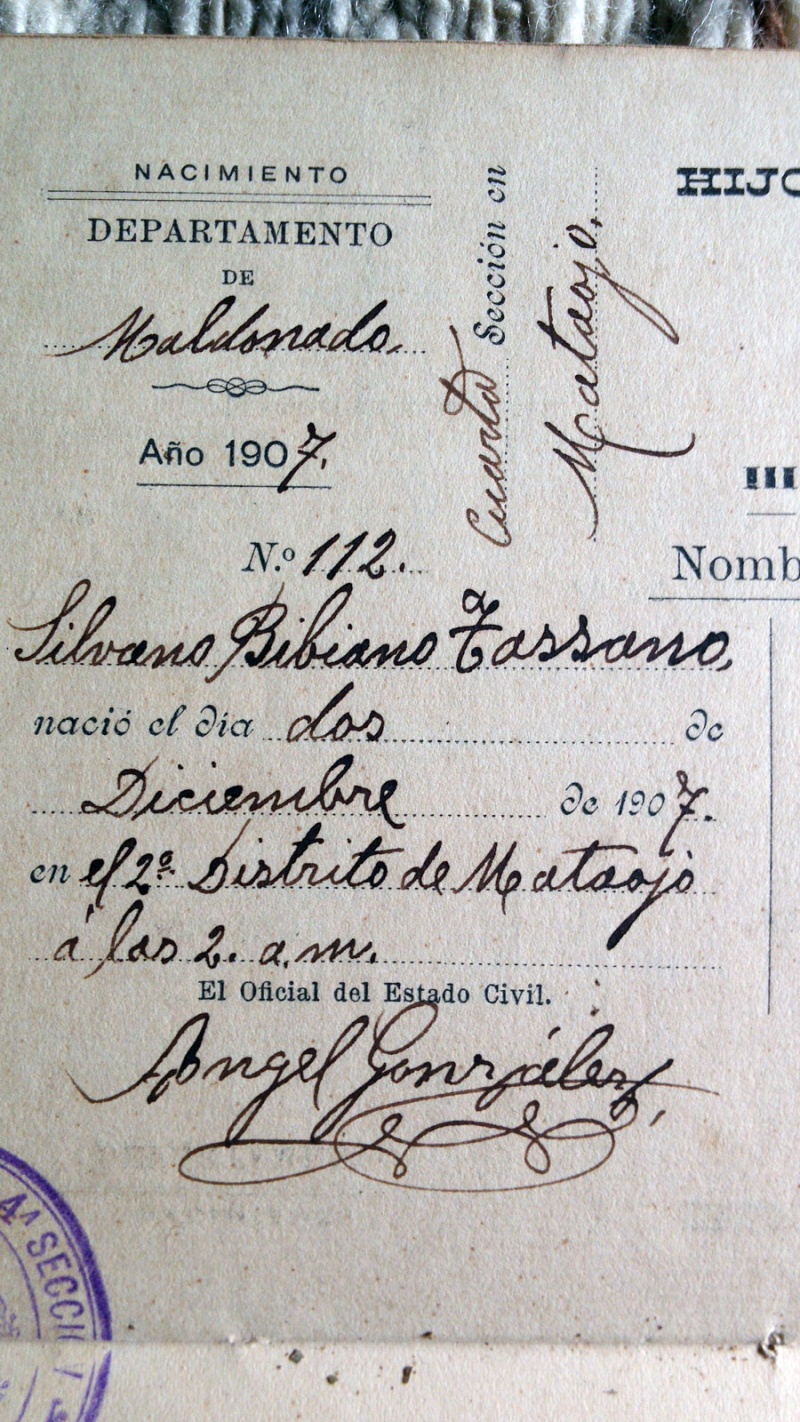 NACIMIENTO
DEPARTAMENTO
DE
Maldonado.
Año 1907.
Cuarta Sección en
Mataojo.
N.º 112.
Silvano Bibiano Tassano,
nació el día dos de
Diciembre de 1907.
en el 2º Distrito de Mataojo
á las 2. a.m.
El Oficial del Estado Civil.
Angel González,
HIJO
III
Nomb
4ª SECCI